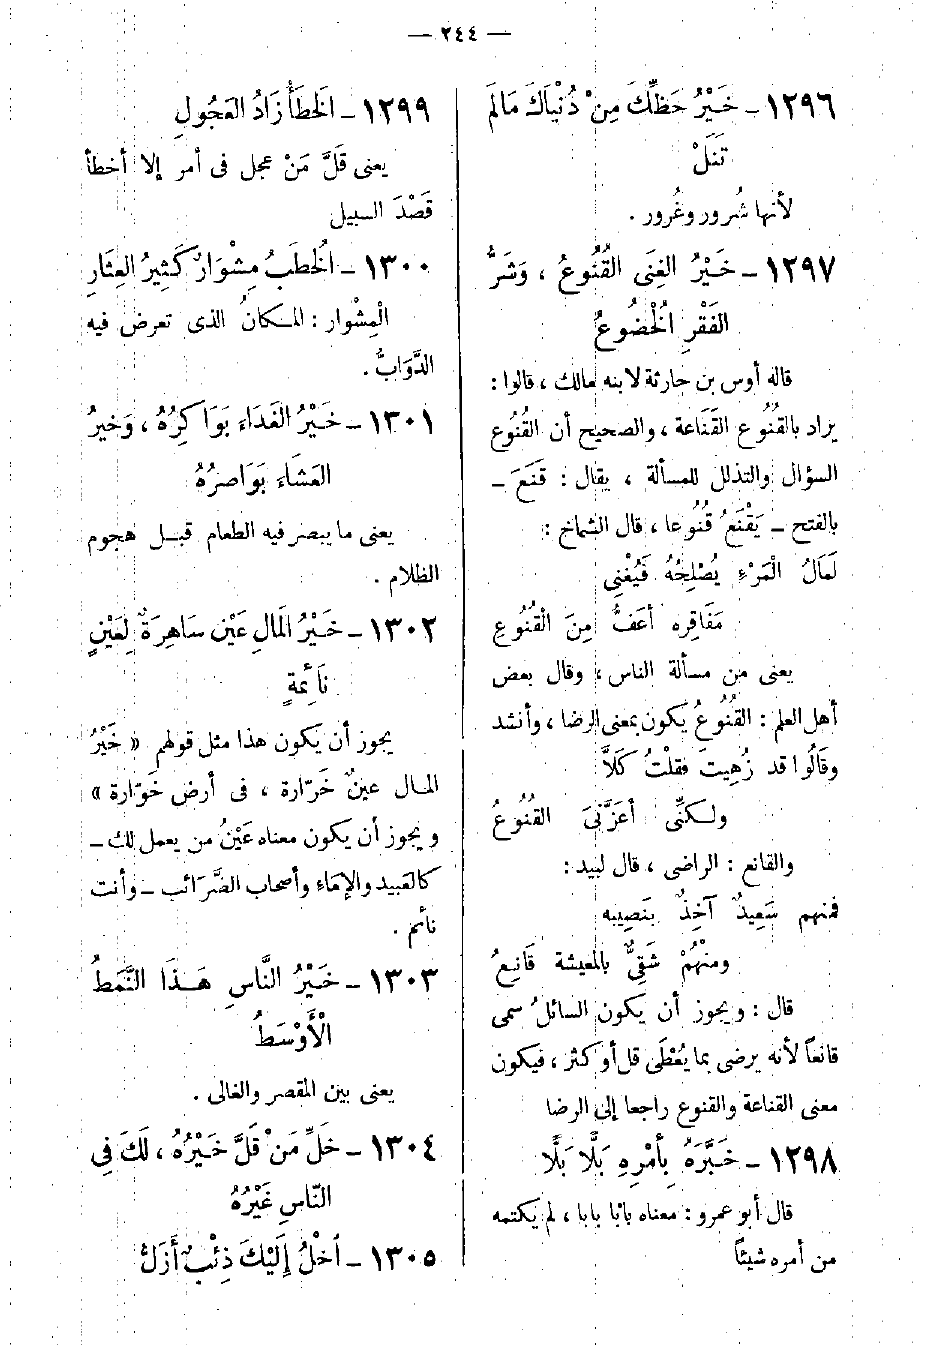 — ٢٤٤ —
١٢٩٦ – خَيْرُ حَظِّكَ مِنْ دُنْيَاكَ مَالَمْ
تَنَلْ
لأنها شُرور وغُرور .
١٢٩٧ – خَيْرُ الغِنَى القُنُوعُ ، وَشَرُّ
الفَقْرِ الْخُضُوعُ
قاله أوس بن حارثة لابنه مالك ، قالوا :
يراد بالقُنُوع القَنَاعة ، والصحيح أن القُنُوع
السؤال والتذلل للمسألة ، يقال : قَنَعَ –
بالفتح – يَقْنَعُ قُنُوعا ، قال الشماخ :
لَمَالُ الْمَرْءِ يُصْلِحُهُ فَيُغْنِى
مَفَاقِره أعَفُّ مِنَ الْقُنُوعِ
يعنى من مسألة الناس ، وقال بعض
أهل العلم : القُنُوعُ يكون بمعنى الرضا ، وأنشد
وقَالُوا قد زُهِيتَ فقلْتُ كَلَّا
ولكنِّى أعَزَّنِىَ القُنُوعُ
والقانع : الراضى ، قال لبيد :
فمنهم سَعِيدٌ آخِذٌ بنَصِيبه
ومنْهُمْ شَقِىٌّ بالمعيشة قَانِعُ
قال : ويجوز أن يكون السائلُ سمى
قانعاً لأنه يرضى بما يُعْطَى قل أو كثر ، فيكون
معنى القناعة والقنوع راجعا إلى الرضا
١٢٩٨ – خَبَّرَهُ بِأَمْرِهِ بَلًّا بَلًّا
قال أبو عمرو : معناه بابًا بابا ، لم يكتمه
من أمره شيئاً
١٢٩٩ – الَخطَأُ زَادُ العَجُولِ
يعنى قَلَّ مَنْ عجل فى أمر إلا أخطأ
قَصْدَ السبيل
١٣٠٠ – الُخطَبُ مِشْوَارٌ كَثِيرُ العِثَارِ
الْمِشْوار : المكانُ الذى تعرض فيه
الدَّوَابُّ .
١٣٠١ – خَيْرُ الغَدَاء بَوَاكِرُهُ ، وَخيرُ
العَشَاء بَوَاصرُهُ
يعنى ما يبصر فيه الطعام قبل هجوم
الظلام .
١٣٠٢ – خَيْرُ الَمالِ عَيْن سَاهِرَةٌ لِعَيْنٍ
نَائِمةٍ
يجوز أن يكون هذا مثل قولهم « خَيْرُ
المال عينٌ خَرّارة ، فى أرض خَوّارة »
ويجوز أن يكون معناه عَيْنُ من يعمل لك –
كالعبيد والإماء وأصحاب الضَّرَائب – وأنت
نائم .
١٣٠٣ – خَيْرُ النَّاسِ هَذَا النَّمَطُ
الْأَوْسَطُ
يعنى بين المقصر والغالى .
١٣٠٤ – خَلِّ مَنْ قَلَّ خَيْرُهُ ، لَكَ فِى
النّاسِ غَيْرُهُ
١٣٠٥ – اُخْلُ إلَيْكَ ذِئْبٌ أَزَلُّ